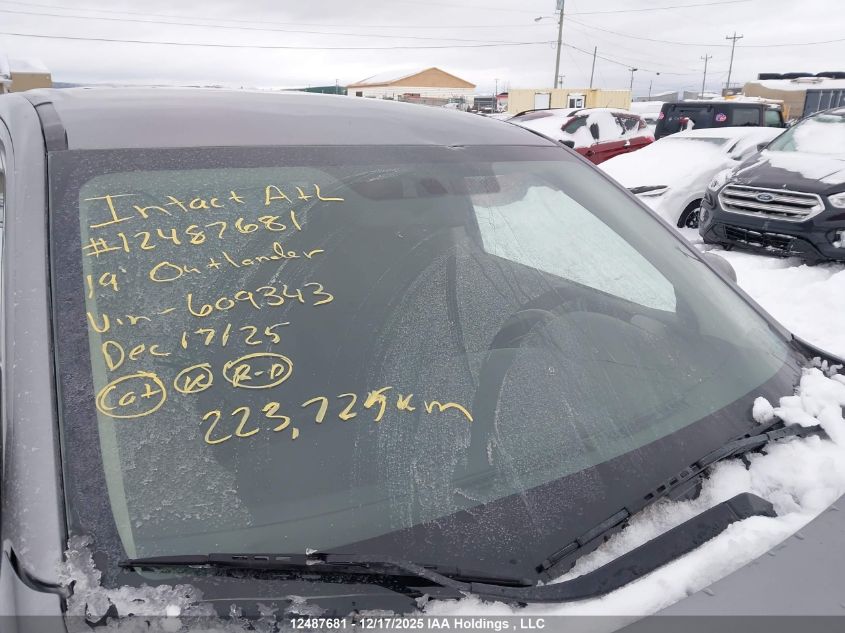 Intact AtL
#12487681
19' Outlander
Vin-609343
Dec 17/25
at K R-D
223,725km
Ford
12487681 - 12/17/2025 IAA Holdings, LLC